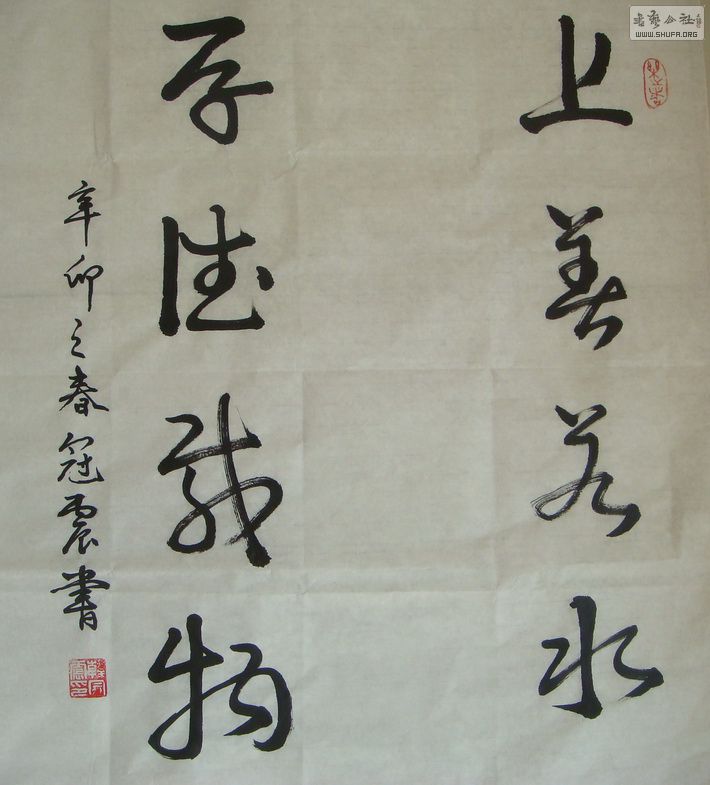 上善若水
厚德载物
辛卯之春冠震书
书艺公社
WWW.SHUFA.ORG